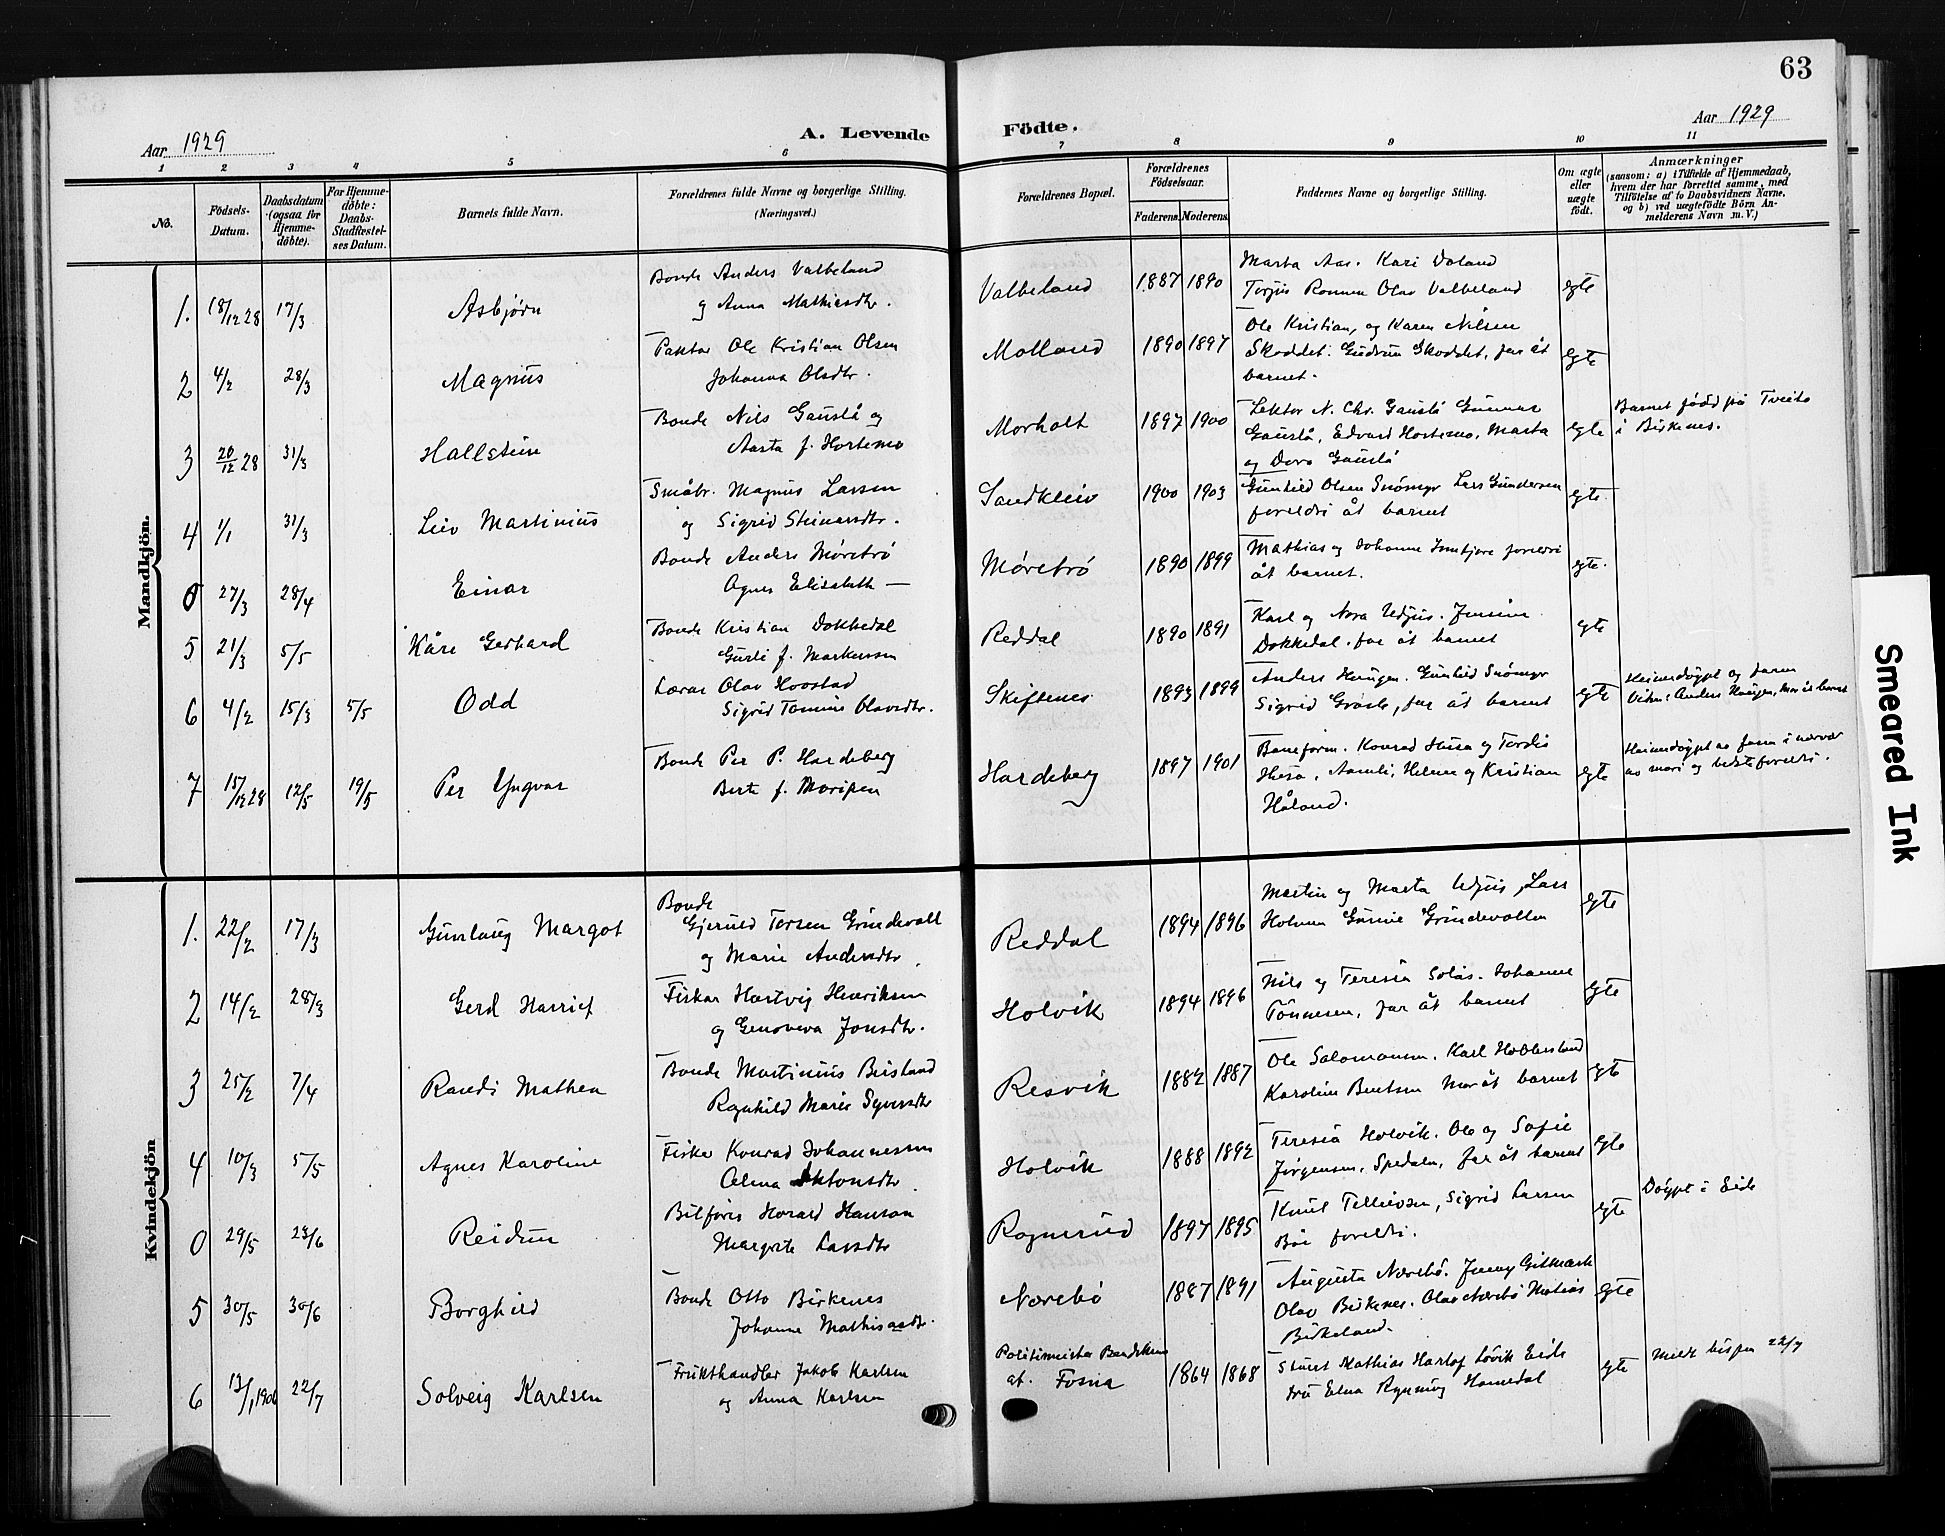 63
Aar 1929
A. Levende
Födte.
Aar 1929
1 2 3 4 5 6 7 8 9 10 11
No.
Födsels-Datum.
Daabsdatum (ogsaa for Hjemme-døbte).
For Hjemme-döbte: Daabs-Stadfæstel-ses Datum.
Barnets fulde Navn.
Forældrenes fulde Navne og borgerlige Stilling. (Næringsvei.)
Forældrenes Bopæl.
Forældrenes Födselsaar.
Faderens. Moderens.
Faddernes Navne og borgerlige Stilling.
Om ægte eller uægte födt.
Anmærkninger
(saasom: a) i Tilfælde af Hjemmedaab,
hvem der har forrettet samme, med
Tilföielse af to Daabsvidners Navne,
og b) ved uægtefödte Börn An-
melderens Navn m. V.)
Mandkjön.
1. 18/12 28 17/3 Asbjørn
Bonde Anders Valbeland
og Anna Mathiesdtr.
Valbeland 1887 1890
Marta Aas. Kari Doland
Terjus Olav Valbeland
egte
2 4/2 28/3 Magnus
Ole Kristian Olsen
Johanna Olsdtr.
Molland 1890 1897
Ole Kristian, og Karen Nilsen
Skoddet. Gudrun Skoddet, far åt
barnet.
egte
3 20/12 28 31/3 Hallstein
Bonde Nils Gauslå og
Aasta f. Hortemo
Morholt 1897 1900
Lektor N. Chr. Gauslå Gunnar
Gauslå, Edvard Hortemo, Marta
og Dora Gauslå
egte
Barnet född på Tveite
i Birkenes.
4 1/1 31/3 Leiv Martinius
Småbr. Magnus Larsen
og Sigrid Steinarsdtr.
Sandkleiv 1900 1903
Gunhild Olsen Snömyr Lars Gundersen
foreldri åt barnet
egte
0 27/3 28/4 Einar
Bonde Anders Møretrø
Agnes Elisabeth —
Møretrø 1890 1899
Mathias og Johanne foreldri
åt barnet.
egte.
5 21/3 5/5 Kåre Gerhard
Bonde Kristian Dokkedal
Gurli f. Markussen
Reddal 1890 1891
Karl og Nora Udjus. Jensine
Dokkedal. far åt barnet
egte
6 4/2 15/3 5/5 Odd
Lærar Olav Hovstad
Sigrid Tomine Olavsdtr.
Skiftenes 1893 1899
Anders Haugen. Gunhild Snömyr
Sigrid Grosle, far åt barnet
egte
Heimedöypt og faren
Vitne: Anders Haugen, Mor åt barnet
7 15/12 28 12/5 19/5 Per Yngvar
Bonde Per P. Hardeberg
Berte f. Moripen
Hardeberg 1897 1901
Baneform. Konrad Husa og Tordis
Husa, Aamli, Helene og Kristian
Håland.
egte
Heimedöypt av faren i nærvær
av mori og besteforeldri.
Kvindekjön
1. 22/2 17/3 Gunlaug Margot
Bonde
Gjeruld Tersen Grindevoll
og Marie Andersdtr.
Reddal 1894 1896
Martin og Marta Udjus, Lars
Holmen Gunnie Grundevollen
egte
2 14/2 28/3 Gerd Harriet
Fiskar Hartvig Henriksen
og Genoveva Jonsdtr.
Holvik 1894 1896
Nils og Teresia Solås. Johanne
Tönnesen, far åt barnet
egte
3 25/2 7/4 Randi Mathea
Bonde Martinius Beisland
Ragnhild Marie Syversdtr
Resvik 1882 1887
Ole Salomonsen. Karl Hobbesland
Karoline Bentsen Mor åt barnet
egte
4 10/3 5/5 Agnes Karoline
Fiskar Konrad Johannessen
Alma Antonsdtr.
Holvik 1888 1892
Teresia Holvik. Ole og Sofie
Jörgensen, Spedalen, far åt barnet
egte
0 29/5 23/6 Reidun
Bilförir Harald Hanson
Margrete Larsdtr
Rognerud 1897 1895
Knut Tellevsen, Sigrid Larsen
Böe foreldri.
egte
Döypt i Eide
5 30/5 30/6 Borghild
Bonde Otto Birkenes
Johanne Mathisasdtr.
Nærebö 1887 1891
Augusta Nærebö. Jenny Gitmark
Olav Birkenes. Olav Nærebö Matias
Birkeland.
egte
6 13/1 1906 22/7 Solveig Karlsen
Frukthandler Jakob Karlsen
og Anna Karlsen
Politimeister Bendiksens
at. Fosna 1864 1868
Mathias Hartof Lövik Eide
fru Elna Rynning Homedal
egte
Meldt bispen 22/7
Smeared Ink